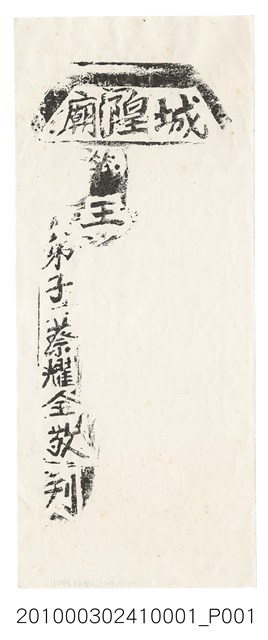 城隍廟
籤王
弟子蔡耀全敬刋
201000302410001_P001